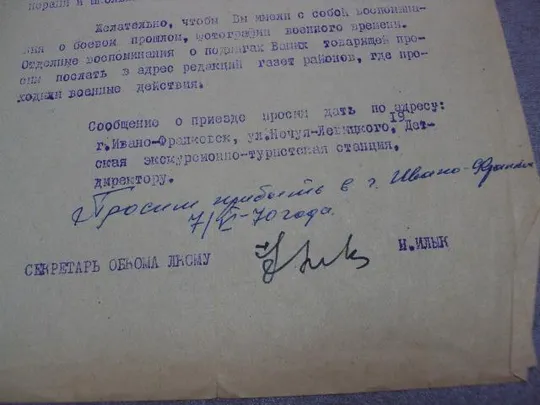 Желательно, чтобы Вы имели с собой воспомина-
ния о боевом прошлом, фотографии военного времени.
Отдельные воспоминания о подвигах Ваших товарищей про-
сим послать в адрес редакций газет районов, где про-
ходили военные действия.
Сообщение о приезде просим дать по адресу:
г.Ивано-Франковск, ул.Нечуя-Левицкого, 19, Дет-
ская экскурсионно-туристская станция,
директору.
Просим прибыть в г. Ивано-Франк
7/VI-70 года.
СЕКРЕТАРЬ ОБКОМА ЛКСМУ
И.ИЛЫК